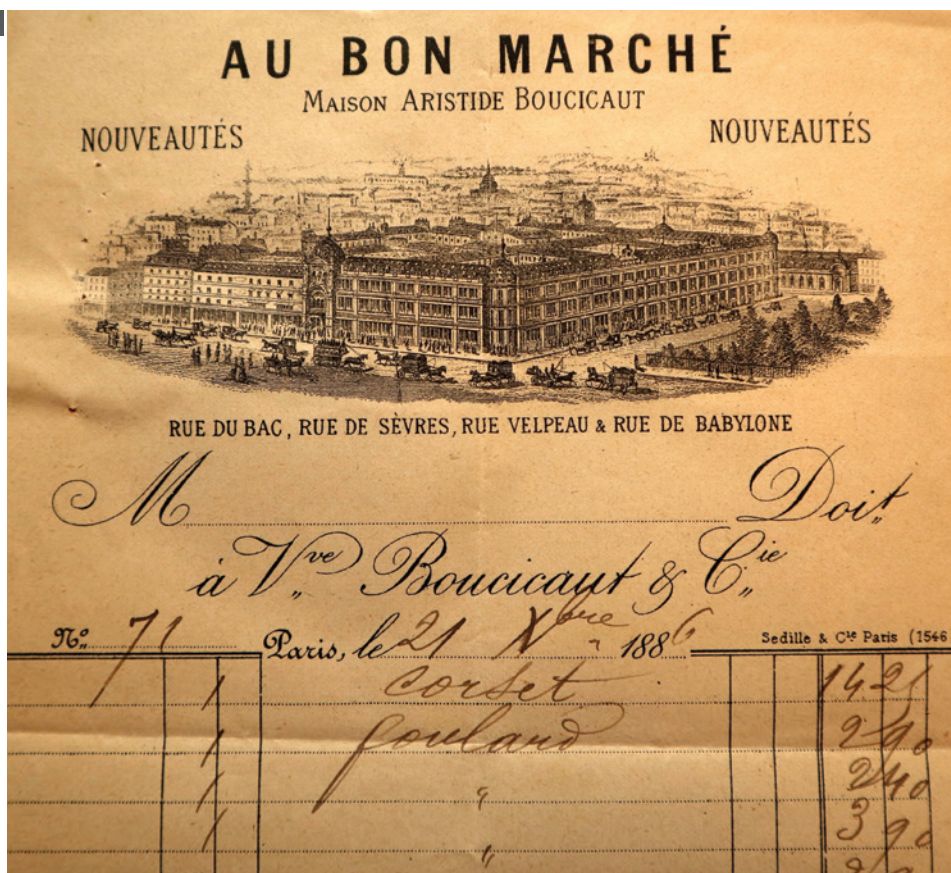 AU BON MARCHÉ
MAISON ARISTIDE BOUCICAUT
NOUVEAUTÉS NOUVEAUTÉS
RUE DU BAC, RUE DE SÈVRES, RUE VELPEAU & RUE DE BABYLONE
M Doit
à Vve Boucicaut & Cie
No. 71 Paris, le 21 Xbre 1886 Sedille & Cie Paris (1546
1 corset 14 21
1 foulard 2 90
1 " 2 40
1 " 3 90